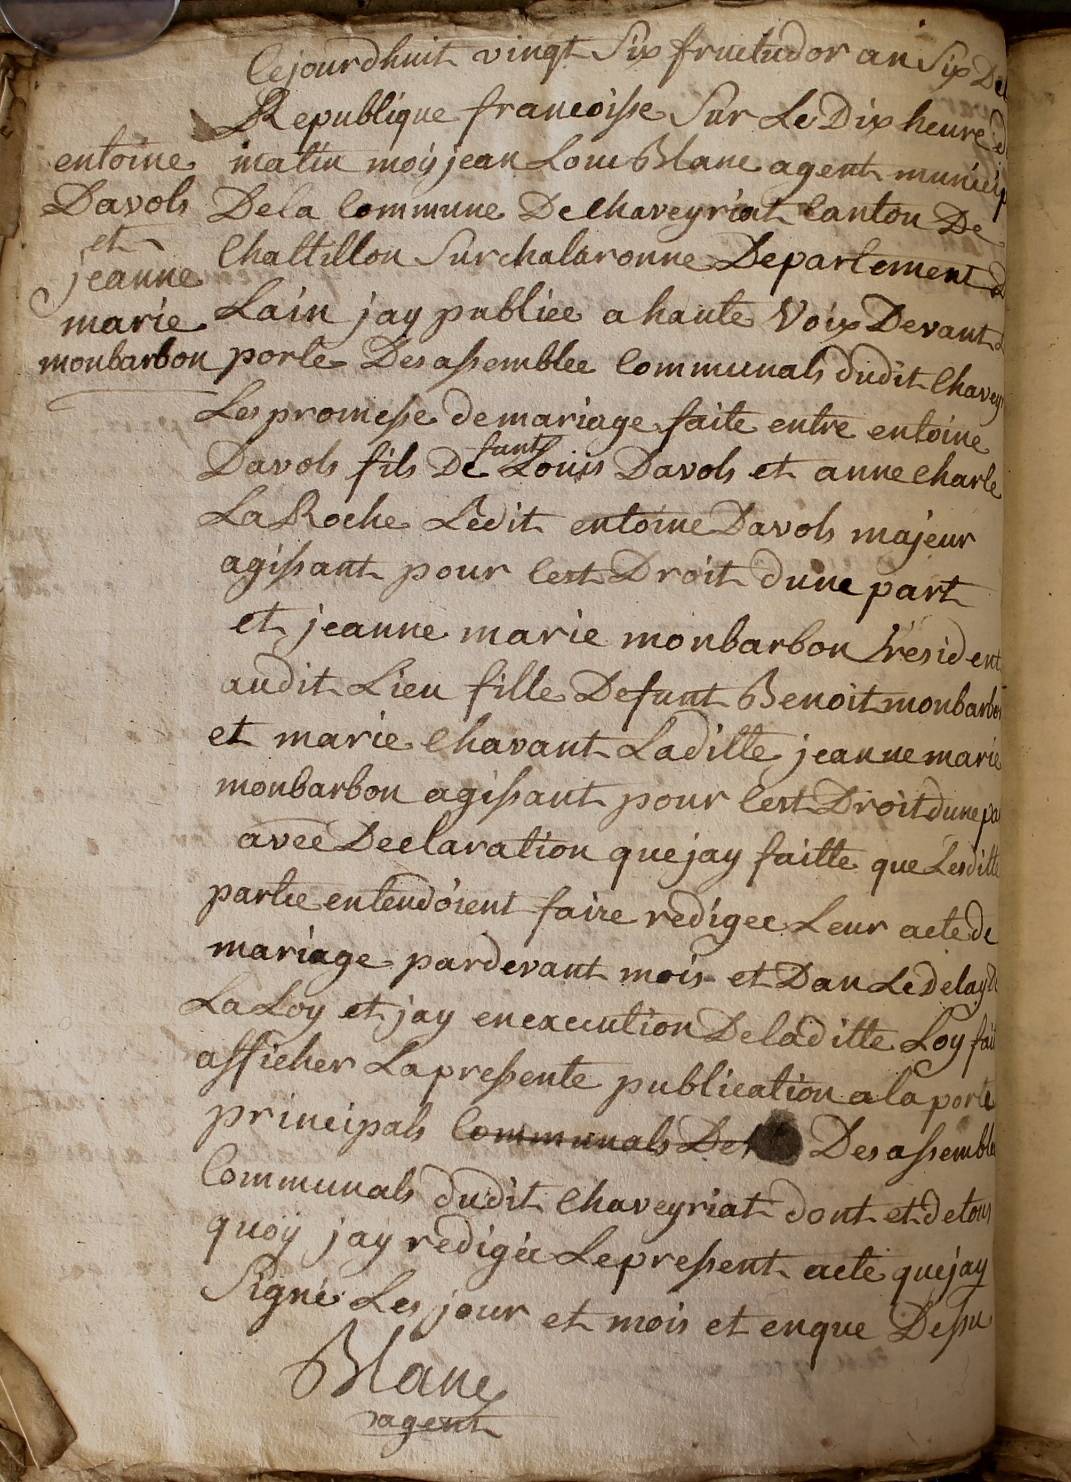 Cejourdhuit vingt Six fructudor an Six De
Republique francoisse Sur Le Dix heure d
matin moÿ jean Loui Blanc agent municip
De la Commune De Chaveyriat Canton De
Chaltillon Sur chalaronne Departement d
Lain jay publiee a haute Voix Devant L
porte Des assemblee Communals dudit Chavey
Les promesse de mariage faite entre entoine
Davols fils De funt Louis Davols et anne Charle
La Roche Ledit entoine Davols majeur
agissant pour Cest Droit dune part
et jeanne marie monbarbon Résident
audit Lieu fille Defunt Benoit monbarbo
et marie Chavant Laditte jeanne marie
monbarbon agissant pour Cest Droit dune pa
avec Declaration que jay faitte que Lesditte
partie entendoient faire redigee Leur acte de
mariage pardevant mois et Dan Le delay D
La Loy et jay en execution De laditte Loy fai
afficher La pressente publication a la porte
principals Communals De Des assemble
Communals dudit Chaveyriat dont et de tous
quoÿ jay redigée Le pressent acte que jay
Signé Les jour et mois et enque Dessu
Blanc
agent
entoine
Davols
et
jeanne
marie
monbarbon